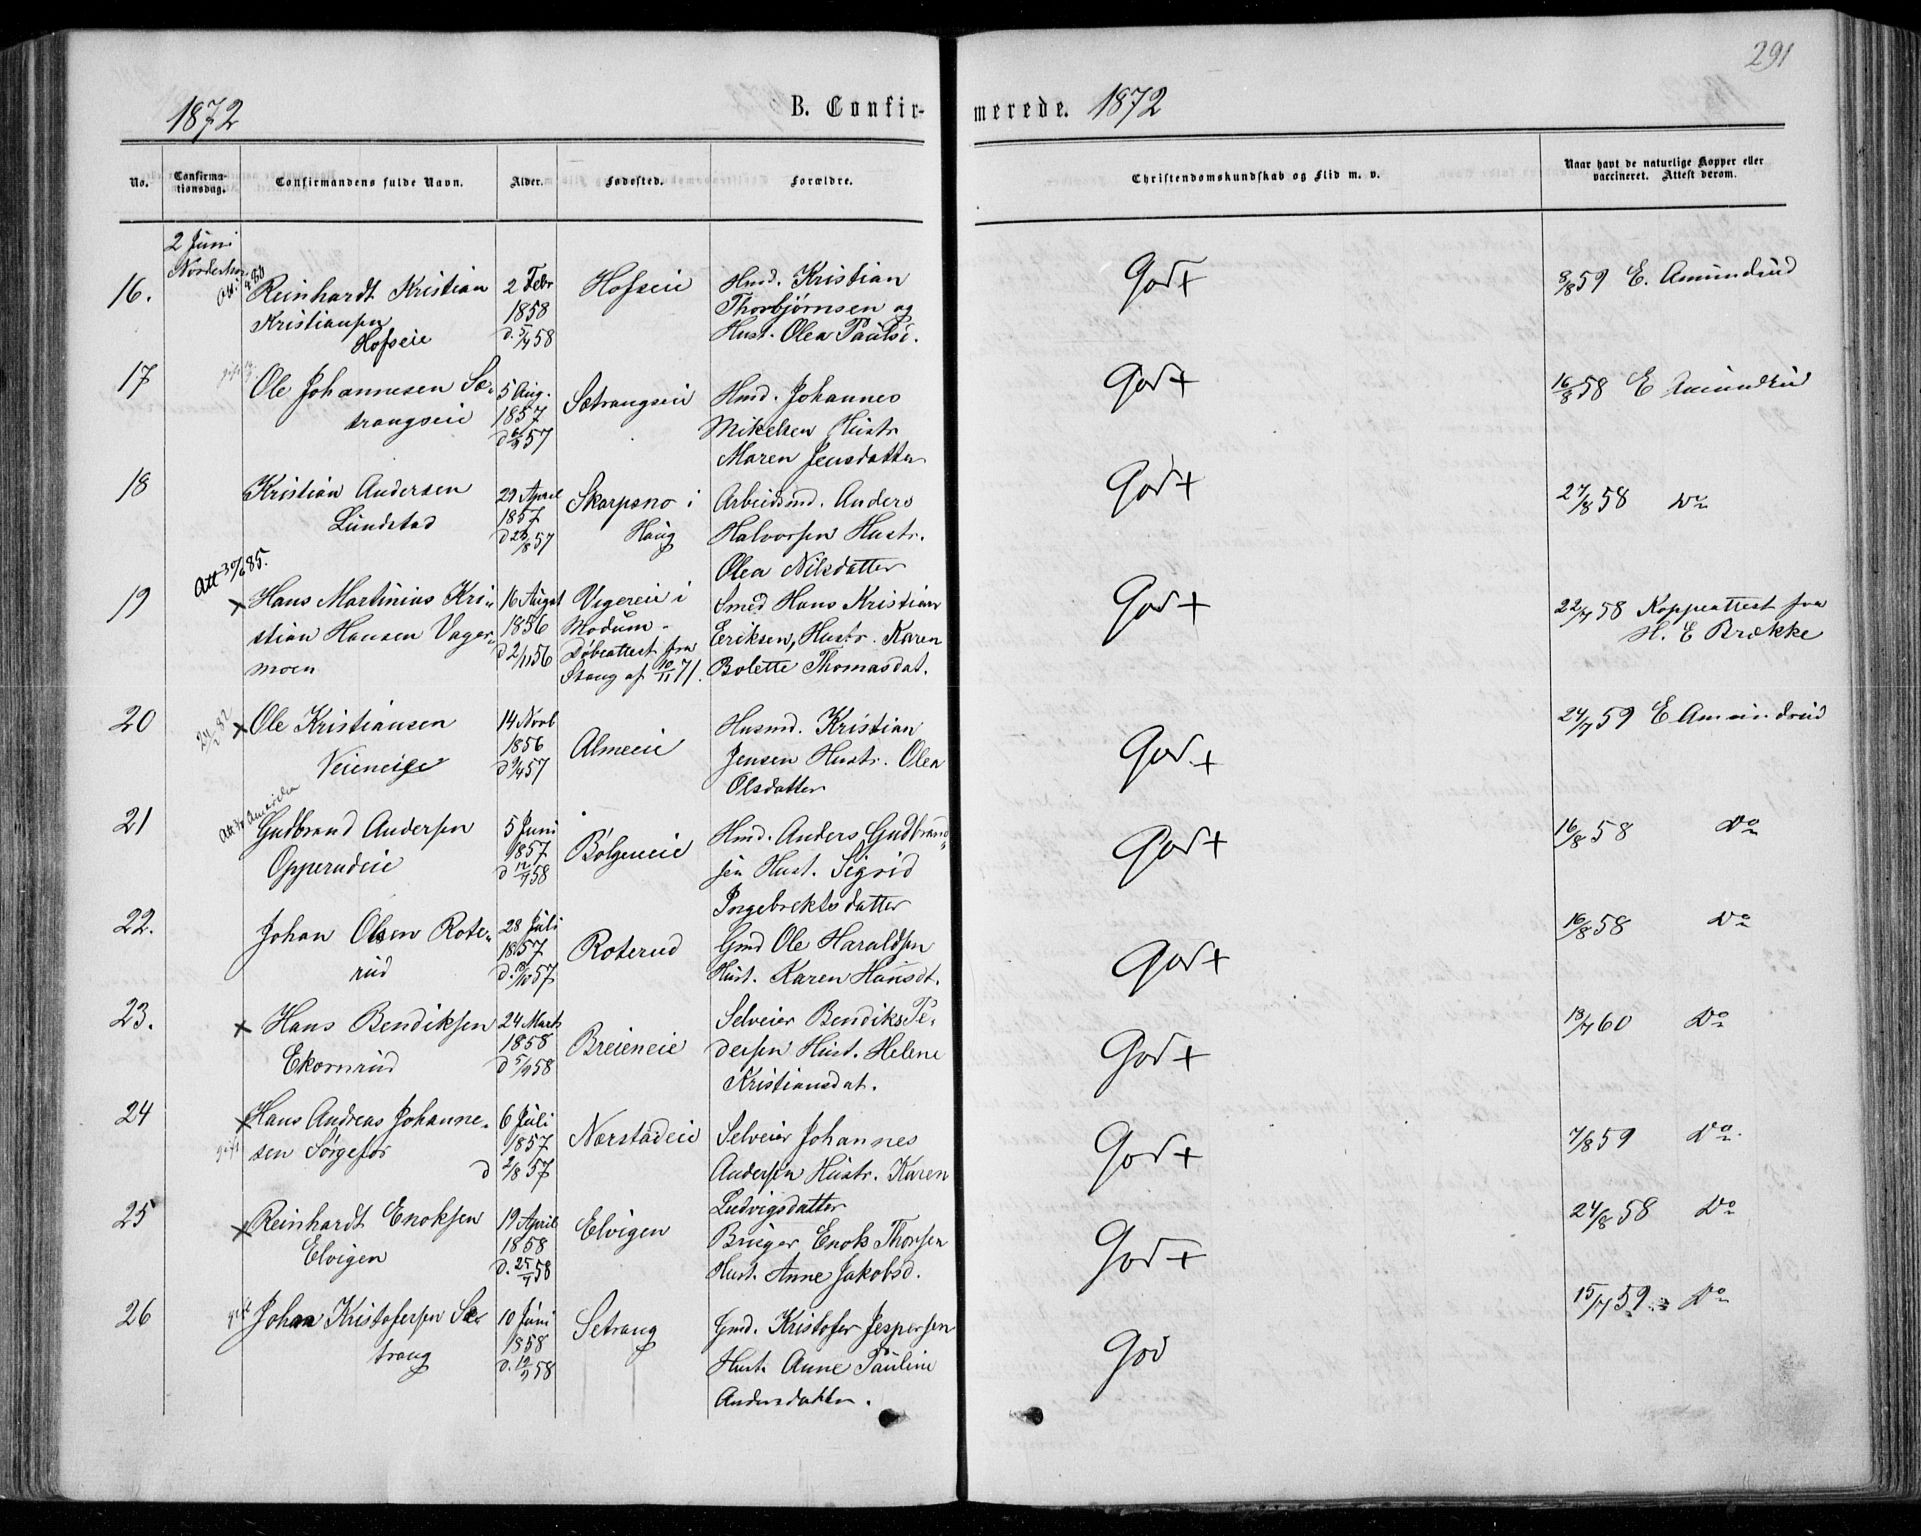 291
1872
B. Confir-
merede. 1872
No.
Confirma-
tionsdag.
Confirmandens fulde Navn.
Alder.
Fødested.
Forældre.
Christendomskundskab og Flid m. v.
Naar havt de naturlige Kopper eller
vaccineret. Attest derom.
2 Juni
16.
Reinhardt Kristian
Kristiansen
Hofseie
2 Febr
1858
d. 5/4 58
Hofseie
Hmd. Kristian
Thorbjørnsen og
Hust. Olea Paulsd.
God +
3/8 59 E. Amundrud
17
Ole Johannesen Sæ-
trangseie
5 Aug.
1857
d 6/9 57
Sætrangseie
Hmd. Johannes
Mikelsen Hustr
Maren Jensdatter
God +
16/8 58 E Amundrud
18
Kristian Andersen
Lundstad
29 April
1857
d 23/8 57
Skarpsno i
Haug
Arbeidsmd. Anders
Halvorsen Hustr.
Olea Nilsdatter
God +
27/8 58 Do
Att 30/6 85.
19
× Hans Martinius Kri-
stian Hansen Vager-
moen
16 August
1856
d 2/11 56
Vegereie i
Modum.
Døbeattest fra
Stang af 10/11 71.
Smed Hans Kristian
Eriksen, Hustr. Karen
Bolette Thomasdat.
God +
22/7 58 Koppeattest fra
H. E Brække
20
× Ole Kristiansen
Veieneie
14 Novb
1856
Almeeie
Husmd. Kristian
Jensen Hustr. Olea
Olsdatter
God. +
24/7 59 E Amundrud
Att. til Amerika
21
Gudbrand Andersen
Opperudeie
5 Juni
1857
d 12/9 58
Bølgeneie
Hmd. Anders Gudbrand-
sen Hust. Sigrid
Ingebrektsdatter
God +
16/8 58 Do
22.
Johan Olsen Rote-
rud
28 Juli
1857
Roterud
Gmd Ole Haraldsen
Hust. Karen Hansdt.
God +
16/8 58 Do
23.
× Hans Bendiksen
Ekornrud
24 Marts
1858
d 5/9 58
Breieneie
Selveier Bendiks Pe-
dersen Hust. Helene
Kristiansdat.
God +
18/7 60 Do
24
× Hans Andreas Johanne-
sen Sørgefos
6 Juli
1857
d 2/8 57
Nærstadeie
Selveier Johannes
Andersen Hustr. Karen
Ludvigsdatter
God +
7/8 59 Do.
25
× Reinhardt Enoksen
Elvigen
19 April
1858
d. 25/4 58
Elvigen
Bruger Enok Thorsen
Hust. Anne Jakobsd.
God +
24/8 58 Do
26
Johan Kristofersen Sæ-
trang
10 Juni
1858
d. 12/9 58
Setrang
Gmd. Kristofer Jespersen
Hust. Anne Pauline
Andersdatter.
God
15/7 59 Do